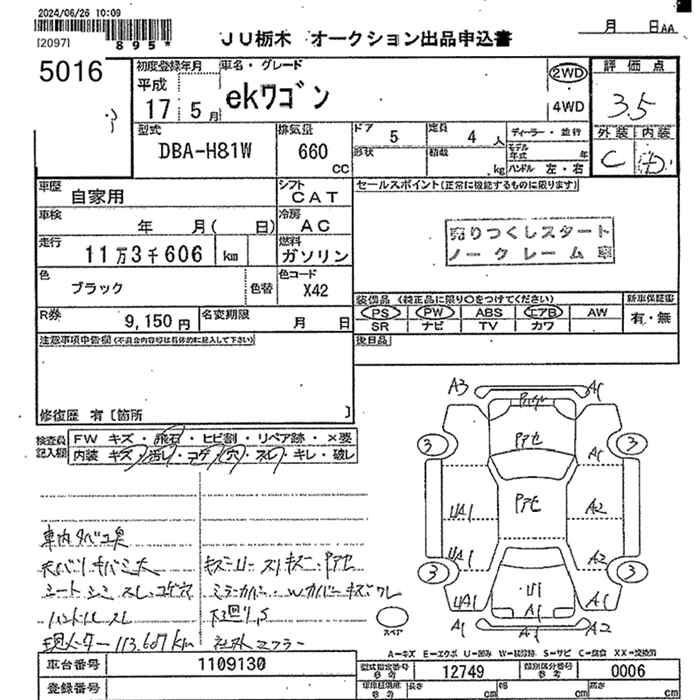 2024/06/26 10:09
[2097]
895*
JU栃木 オークション出品申込書
月 日AA
5016
初度登録年月
平成
17 5月
車名・グレード
ekワゴン
2WD
4WD
評価点
3.5
型式
DBA-H81W
排気量
660 CC
ドア 5
定員 4人
形状
積載 kg
ディーラー・並行
モデル年式 年
ハンドル 左・右
外装 内装
C
車歴 自家用
シフト CAT
セールスポイント(正常に機能するものに限ります)
車検 年 月( 日)
冷房 AC
売りつくしスタート
ノークレーム車
走行 11万3千606 km
燃料 ガソリン
色 ブラック
色替
色コード X42
装備品(純正品に限り○をつけてください)
新車保証書
PS PW ABS エアB AW
SR ナビ TV カワ
有・無
R券 9,150円
名変期限 月 日
後日品
注意事項申告欄(不具合内容等は具体的に記入して下さい)
修復歴 有〔箇所 〕
検査員記入欄
FW キズ・飛石・ヒビ割・リペア跡・×要
内装 キズ・汚レ・コゲ・穴・スレ・キレ・破レ
A3 A1
3 3
アセ
A1
アセ
UA1 A2
UA1 A2
3 3
U1
UA1 A1 A1
A1 A2
スペア
車内タバコ臭
シートシミ スレ コゲ穴
ハンドルスレ
現メーター 113,607km
社外マフラー
A-キズ E-エクボ U-凹み W-補修跡 S-サビ C-腐食 XX-交換済
車台番号 1109130
型式指定番号 参考 12749
類別区分番号 参考 0006
登録番号
長さ cm
幅 cm
高さ cm